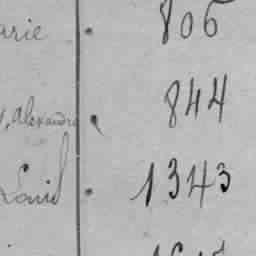 arie 806
Alexandre 844
Louis 1343